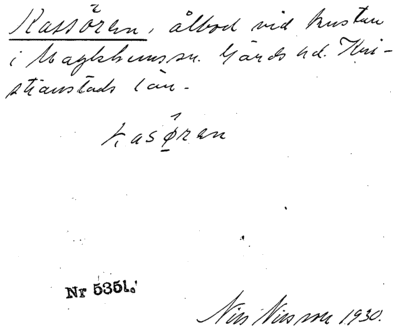 Kassören, ålbod vid kusten
i Maglehems sn. Gärds hd. Kri-
stianstads län.
kasøren
Nr 5351.
Nils Nilsson 1930.